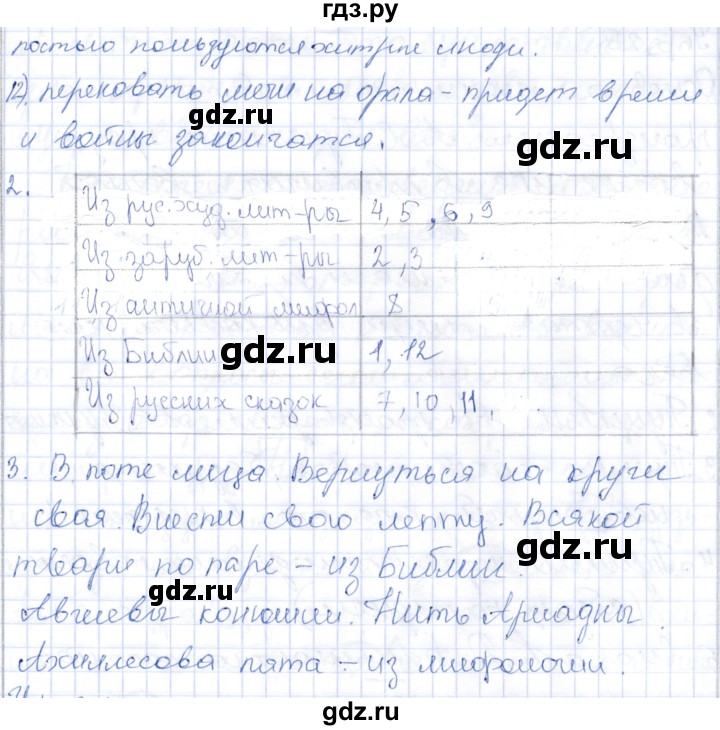 гдз.ру
ностью пользуются хитрые люди.
12) перековать мечи на орала - придет время
и войны закончатся.
gdz.ru
gdz.ru
2.
Из рус. худ. лит-ры 4, 5, 6, 9
Из заруб. лит-ры 2, 3
Из античной мифол 8
Из Библии 1, 12
gdz.ru
Из русских сказок 7, 10, 11.
gdz.ru
3. В поте лица. Вернуться на круги
своя. Внести свою лепту. Всякой
твари по паре – из Библии.
gdz.ru
gdz.ru
Авгиевы конюшни. Нить Ариадны.
Ахиллесова пята – из мифологии.
gdz.ru